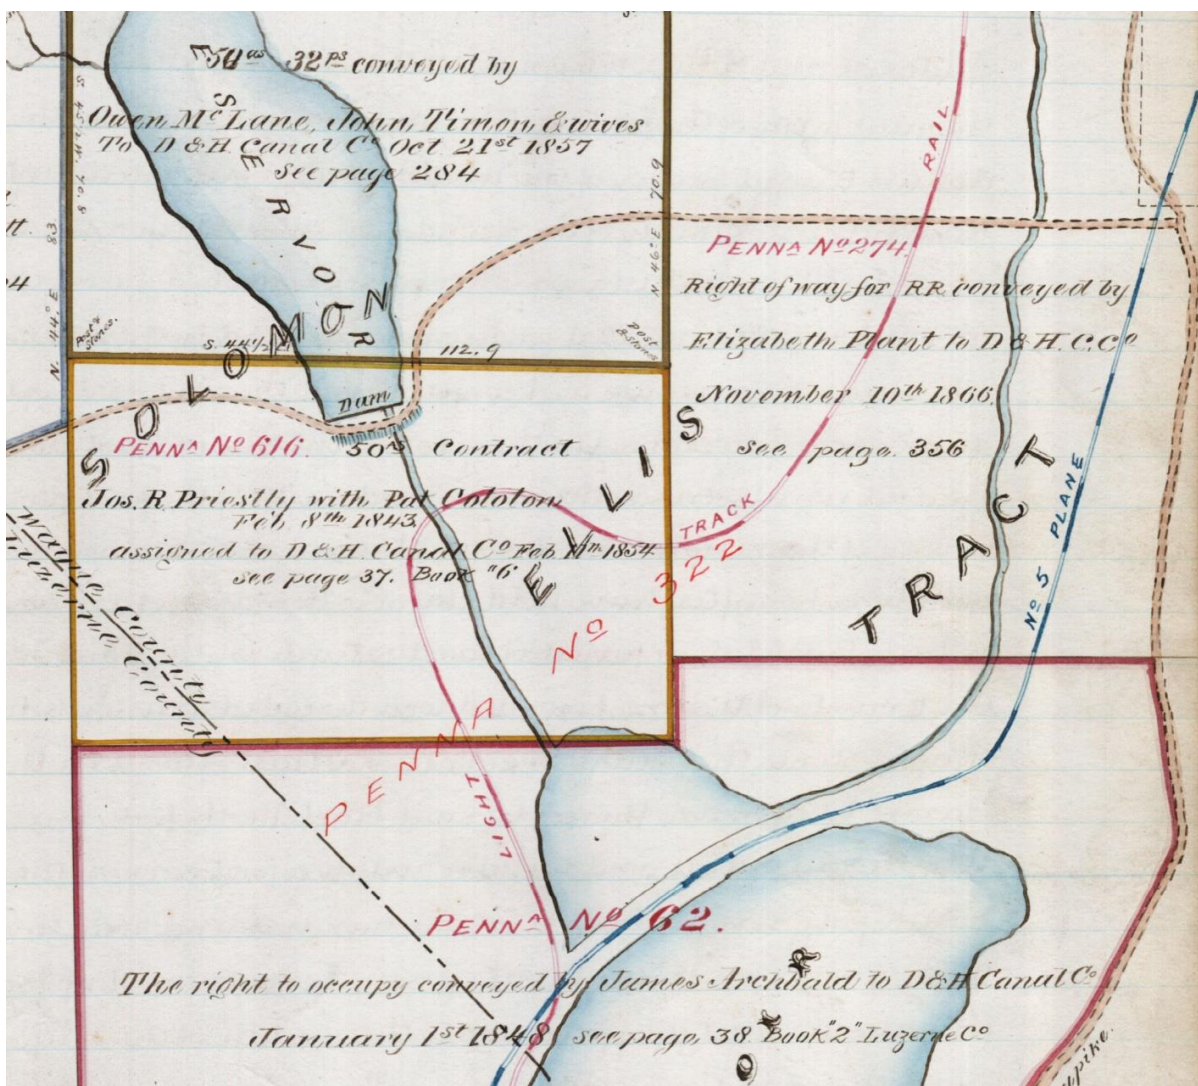 50as 32ps conveyed by
Owen McLane, John Timon & wives
To D & H Canal Co Oct 21st 1857
see page 284
RESERVOIR
S 44½
112.9
N 46° E 70.9
Post & Stones
Post & Stones.
N. 44° E 83
RAIL
PENNA No 274.
Right of way for RR conveyed by
Elizabeth Plant to D & H. C. Co
November 10th 1866.
see page 356
SOLOMON
Dam
PENNA No 616.
50as Contract
Jos. R. Priestly with Pat Coloton
Feb 8th 1843.
assigned to D & H. Canal Co Feb 1854
see page 37. Book "6"
EVLIS
TRACT
TRACK
No 5 PLANE
Wayne County
Luzerne County
PENNA No 322
LIGHT
PENNA No 62.
The right to occupy conveyed by James Archbald to D & H Canal Co
January 1st 1848 see page 38 Book "2" Luzerne Co